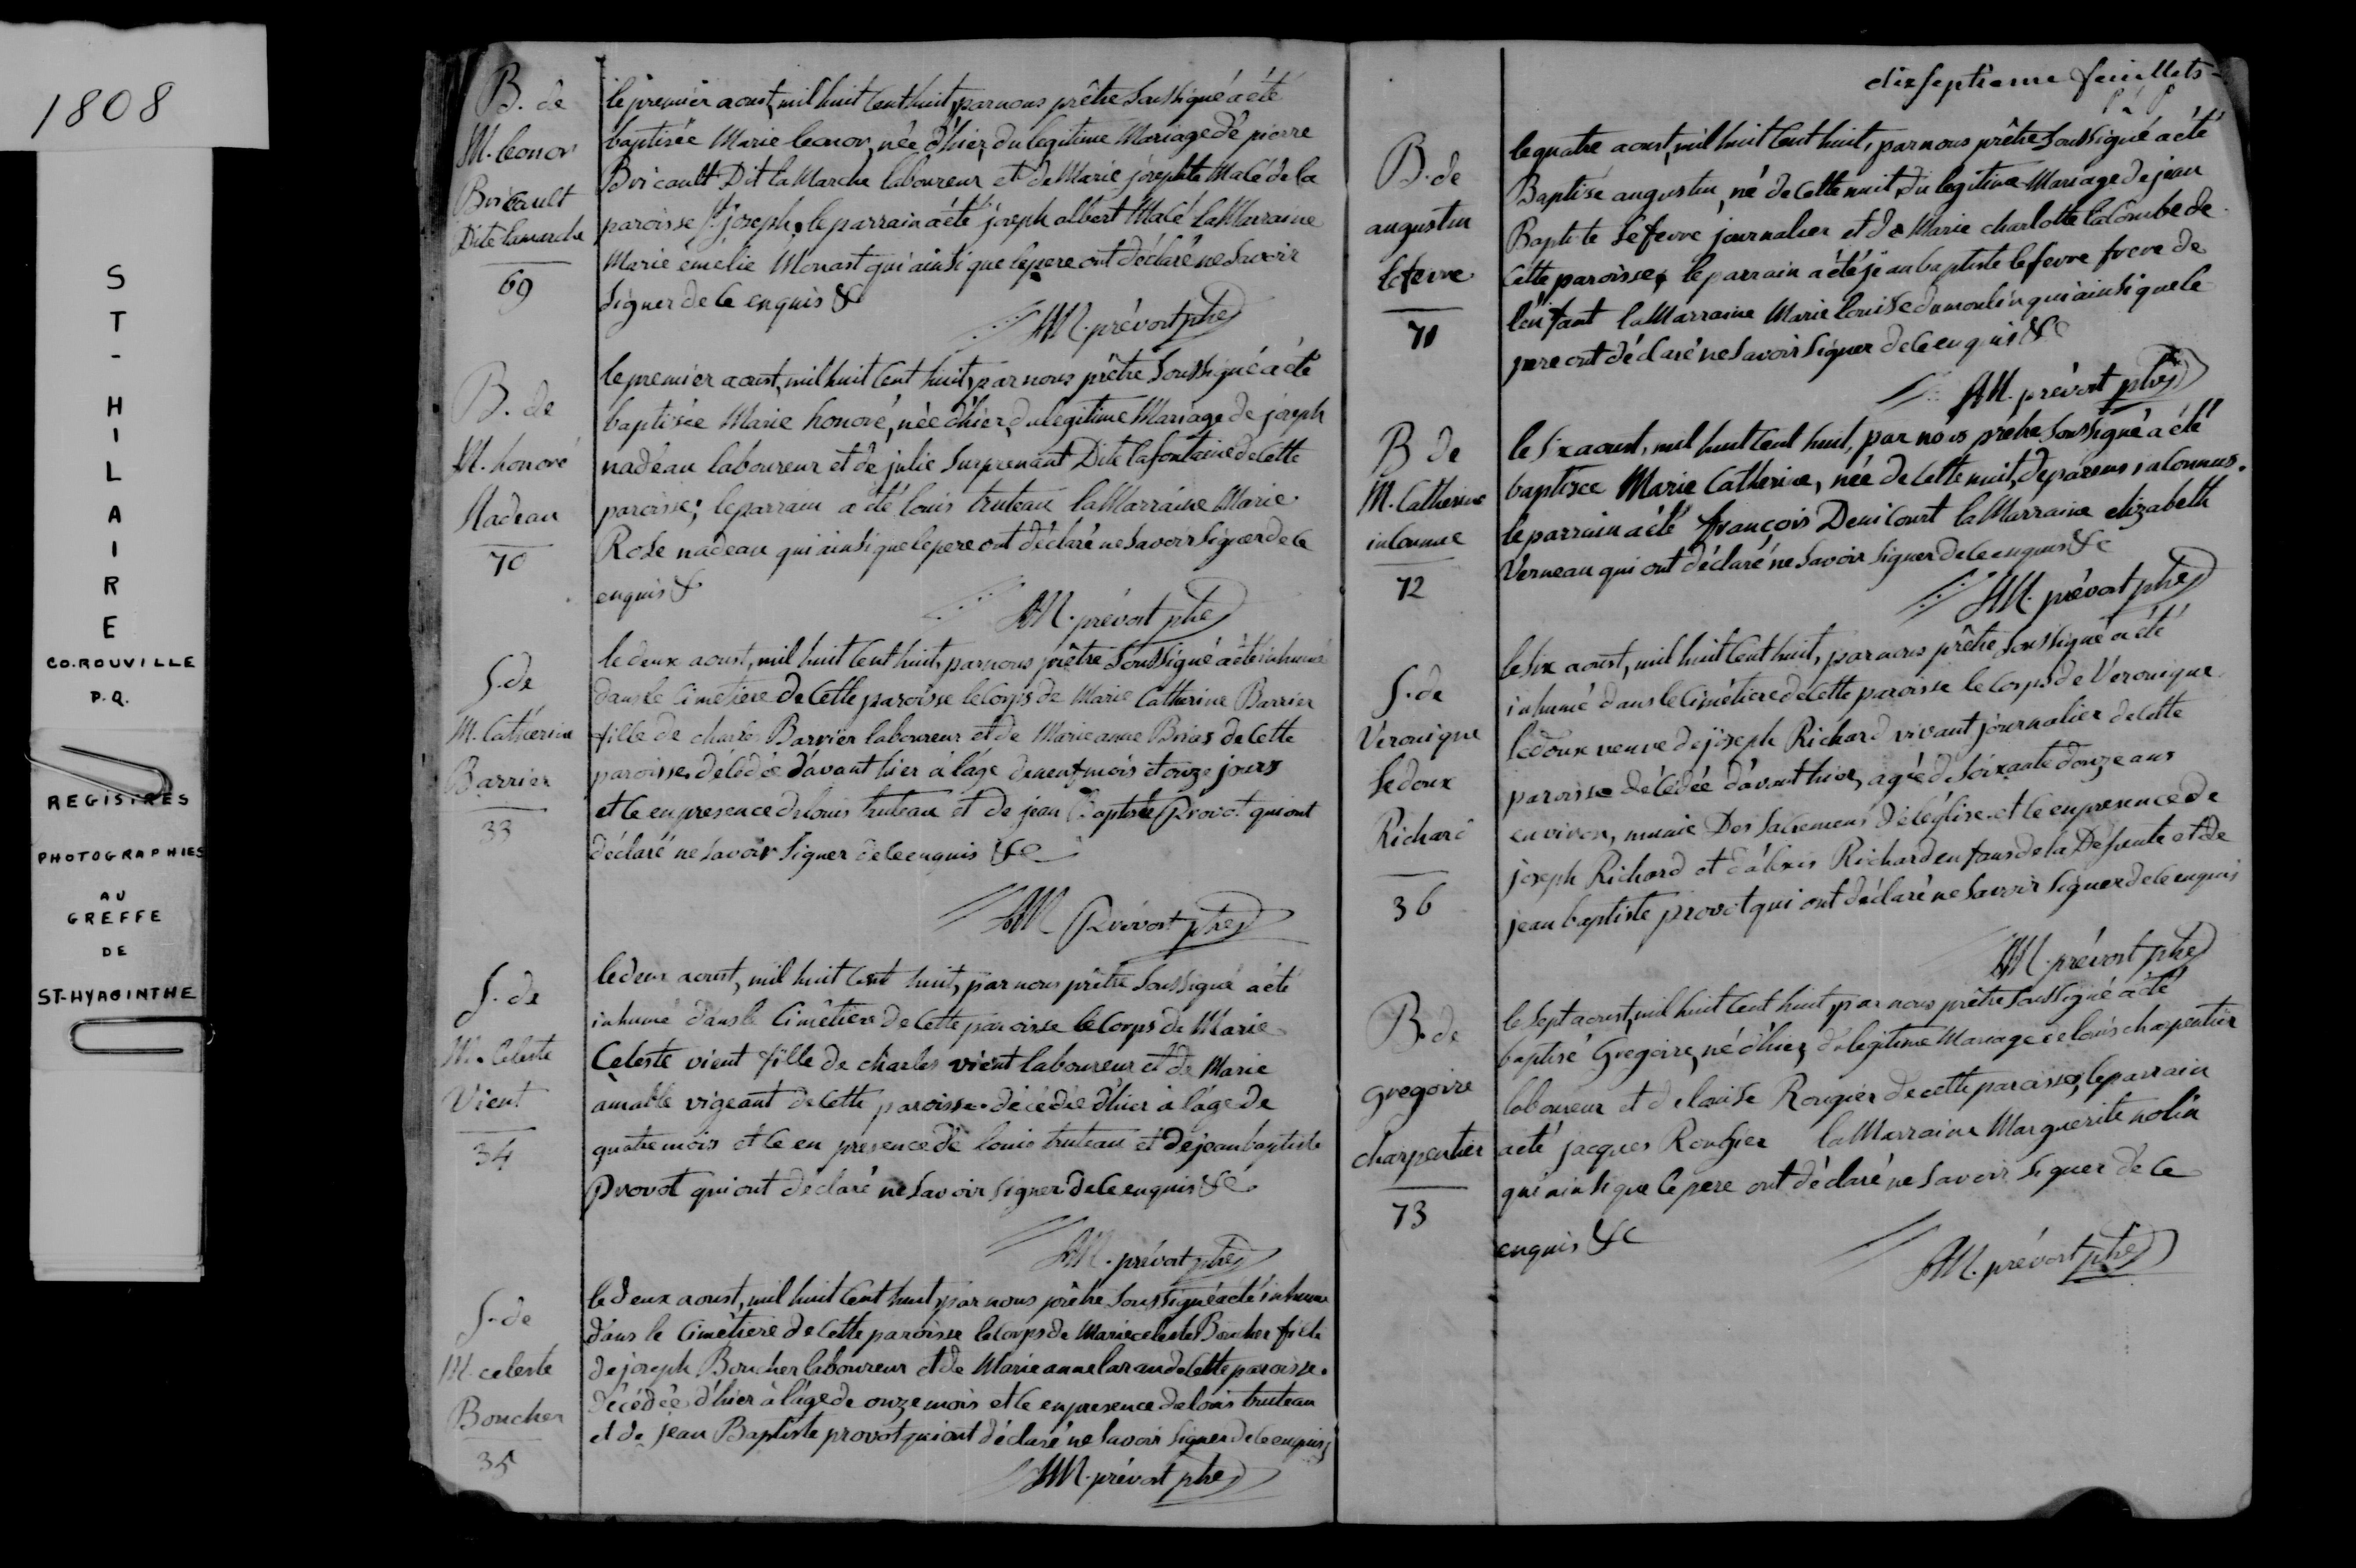 1808
ST-HILAIRE
CO. ROUVILLE
P.Q.
REGISTRES
PHOTOGRAPHIES
AU
GREFFE
DE
ST-HYACINTHE
B. de
M. leonor
Boicault
Dite lamarche
69
le premier aoust, mil huit Cent huit, par nous prêtre Soussigné a été
baptisée Marie leonor, née d'hier, du legitime Mariage de pierre
Boicault Dit la Marche laboureur et de Marie josephte Malé de la
paroisse St joseph. le parrain a été joseph albert Malé la Marraine
Marie émélie Monast qui ainsi que le pere ont déclaré ne Savoir
Signer de Ce enquis &c
JM. prévost ptre
B. de
M. honoré
Nadeau
70
le premier aoust, mil huit Cent huit, par nous prêtre Soussigné a été
baptisée Marie honoré, née d'hier, du legitime Mariage de joseph
nadeau laboureur et de julie Surprenant Dite lafontaine de Cette
paroisse; le parrain a été louis truteau la Marraine Marie
Rose nadeau qui ainsi que le pere ont déclaré ne Savoir Signer de Ce
enquis &
JM. prévost ptre
S. de
M. Catherine
Barrier
33
le deux aoust, mil huit Cent huit, par nous prêtre Soussigné a été inhumé
dans le Cimetiere de Cette paroisse le Corps de Marie Catherine Barrier
fille de charles Barrier laboureur et de Marie anne Brias de Cette
paroisse. décédée d'avant hier à l'âge de neuf mois et onze jours
et Ce en presence de louis truteau et de jean Baptiste Provot qui ont
déclaré ne Savoir Signer de Ce enquis &c
JM Prévost ptre
S. de
M. Celeste
Vient
34
le deux aoust, mil huit Cent huit, par nous prêtre Soussigné a été
inhumé dans le Cimêtiere de Cette paroisse le Corps de Marie
Celeste vient fille de charles vient laboureur et de Marie
amable vigeant de Cette paroisse. décédée d'hier à l'âge de
quatre mois et Ce en presence de louis truteau et de jean baptiste
Provot qui ont déclaré ne Savoir Signer de Ce enquis &c
JM. prévost ptre
S. de
M. celeste
Boucher
35
le deux aoust, mil huit Cent huit, par nous prêtre Soussigné a été inhumé
dans le Cimêtiere de Cette paroisse le Corps de Marie celeste Boucher fille
de joseph Boucher laboureur et de Marie anne larau de Cette paroisse.
décédée d'hier à l'âge de onze mois et Ce en presence de louis truteau
et de jean Baptiste provot qui ont déclaré ne Savoir Signer de Ce enquis
JM. prévost ptre
dixseptieme feuillets
B. de
augustin
lefevre
71
le quatre aoust, mil huit Cent huit, par nous prêtre Soussigné a été
Baptisé augustin, né de Cette nuit du legitime Mariage de jean
Baptiste Lefevre journalier et de Marie charlotte laCombe de
Cette paroisse, le parrain a été jean baptiste lefevre frere de
l'enfant la Marraine Marie louise dumoulin qui ainsi que le
pere ont déclaré ne Savoir Signer de Ce enquis &c
JM. prévost ptre
B de
M. Catherine
inconnue
72
le Six aoust, mil huit Cent huit, par nous prêtre Soussigné a été
baptisée Marie Catherine, née de Cette nuit, de parens inConnus.
le parrain a été françois DeniCourt la Marraine elizabeth
Verneau qui ont déclaré ne Savoir Signer de Ce enquis &c
JM. prévost ptre
S. de
Veronique
Ledoux
Richard
36
le Six aoust, mil huit Cent huit, par nous prêtre Soussigné a été
inhumé dans le Cimêtiere de Cette paroisse le Corps de Veronique
ledoux veuve de joseph Richard vivant journalier de Cette
paroisse décédée d'avant hier, agée de Soixante douze ans
environ, munie Des Sacremens de l'église. et Ce en presence de
joseph Richard et d'alexis Richard enfans de la Défunte et de
jean baptiste provot qui ont déclaré ne Savoir Signer de Ce enquis
JM. prévost ptre
B. de
gregoire
charpentier
73
le Sept aoust, mil huit Cent huit, par nous prêtre Soussigné a été
baptisé Gregoire, né d'hier, du legitime Mariage de louis charpentier
laboureur et de louise Rougier de cette paroisse, le parrain
a été jacques Rougier la Marraine Marguerite nolin
qui ainsi que le pere ont déclaré ne Savoir Signer de Ce
enquis &c
JM. prévost ptre